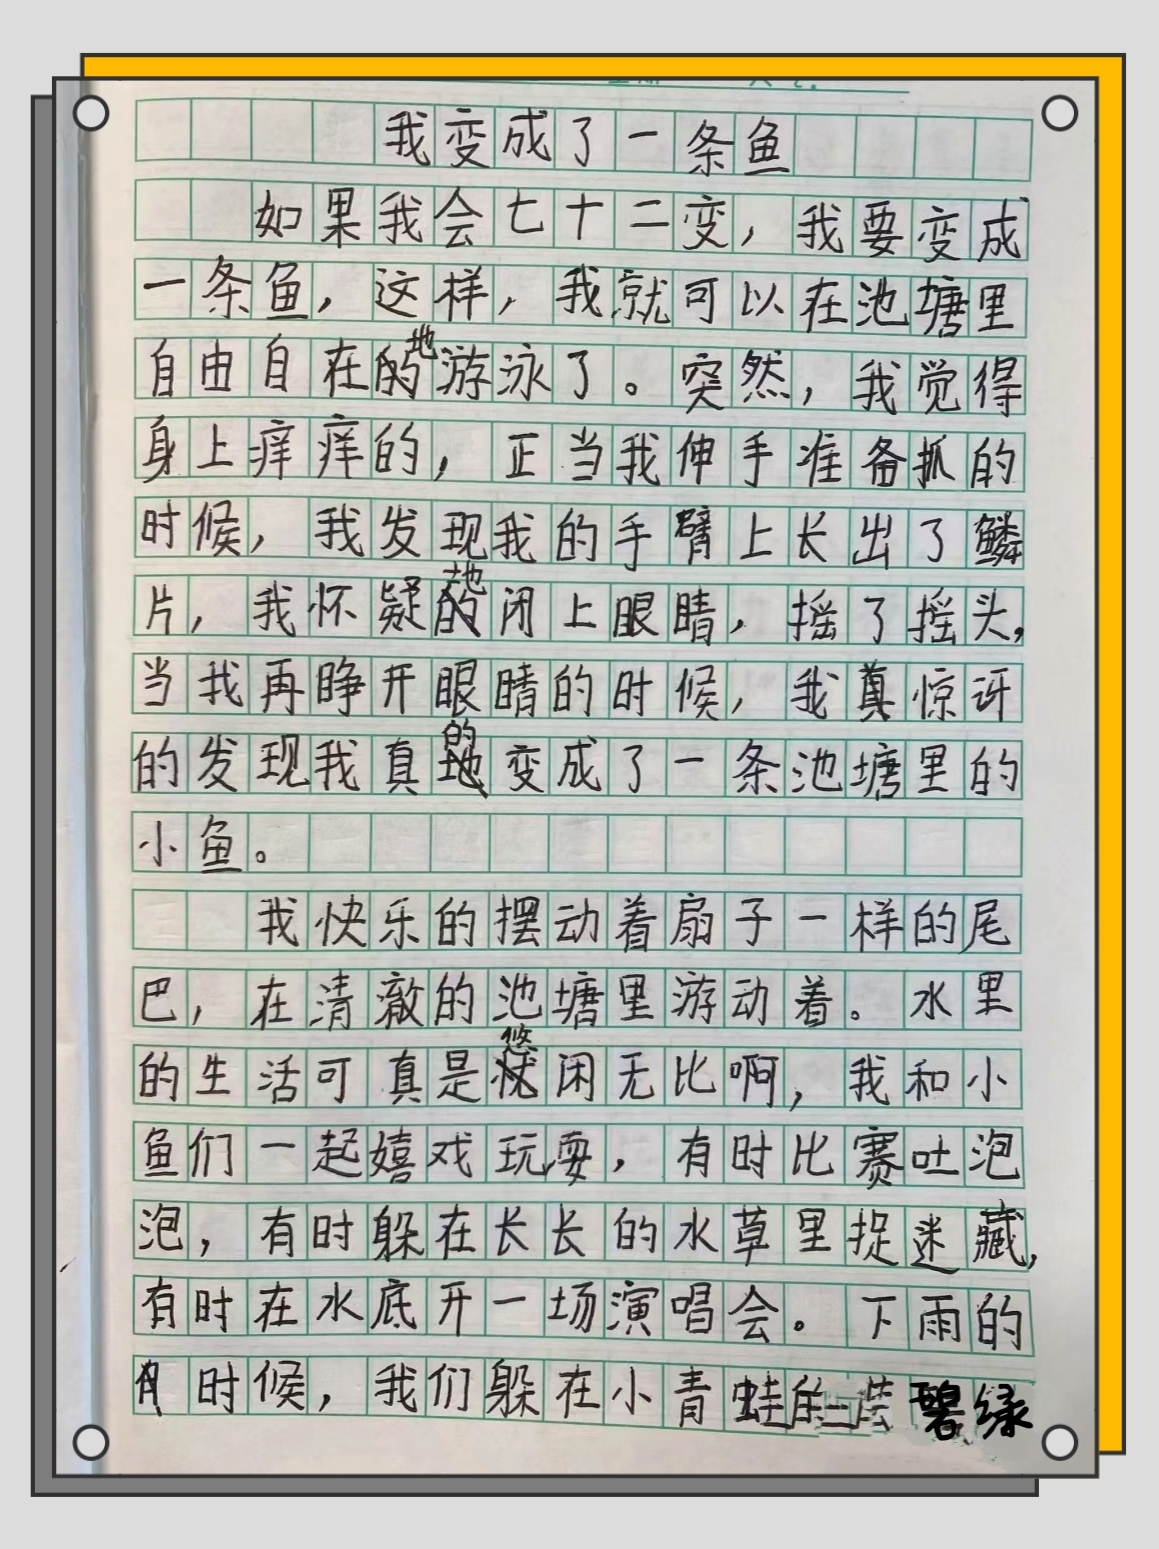 我变成了一条鱼
如果我会七十二变，我要变成
一条鱼，这样，我就可以在池塘里
自由自在地游泳了。突然，我觉得
身上痒痒的，正当我伸手准备抓的
时候，我发现我的手臂上长出了鳞
片，我怀疑地闭上眼睛，摇了摇头，
当我再睁开眼睛的时候，我真惊讶
的发现我真的变成了一条池塘里的
小鱼。
我快乐的摆动着扇子一样的尾
巴，在清澈的池塘里游动着。水里
的生活可真是悠闲无比啊，我和小
鱼们一起嬉戏玩耍，有时比赛吐泡
泡，有时躲在长长的水草里捉迷藏，
有时在水底开一场演唱会。下雨的
时候，我们躲在小青蛙的碧绿